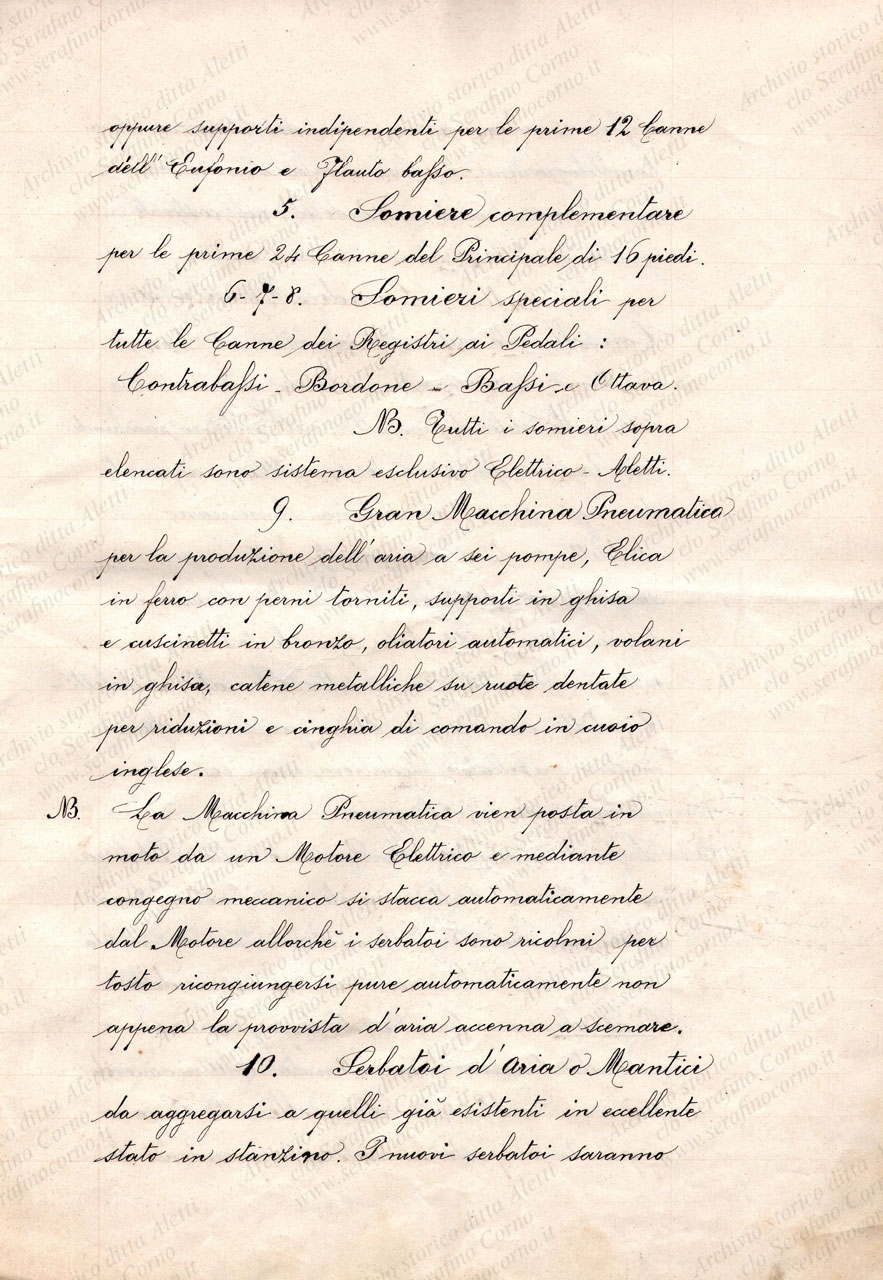 oppure supporti indipendenti per le prime 12 Canne
dell' Eufonio e Flauto basso.
5. Somiere complementare
per le prime 24 Canne del Principale di 16 piedi.
6-7-8. Somieri speciali per
tutte le Canne dei Registri ai Pedali :
Contrabassi - Bordone - Bassi e Ottava.
NB. Tutti i somieri sopra
elencati sono sistema esclusivo Elettrico - Aletti.
9. Gran Macchina Pneumatica
per la produzione dell' aria a sei pompe, Elica
in ferro con perni torniti, supporti in ghisa
e cuscinetti in bronzo, oliatori automatici, volani
in ghisa, catene metalliche su ruote dentate
per riduzioni e cinghia di comando in cuoio
inglese.
NB. La Macchina Pneumatica vien posta in
moto da un Motore Elettrico e mediante
congegno meccanico si stacca automaticamente
dal Motore allorchè i serbatoi sono ricolmi per
tosto ricongiungersi pure automaticamente non
appena la provvista d'aria accenna a scemare.
10. Serbatoi d'Aria o Mantici
da aggregarsi a quelli già esistenti in eccellente
stato in stanzino. I nuovi serbatoi saranno
Archivio storico ditta Aletti
c/o Serafino Corno
www.serafinocorno.it